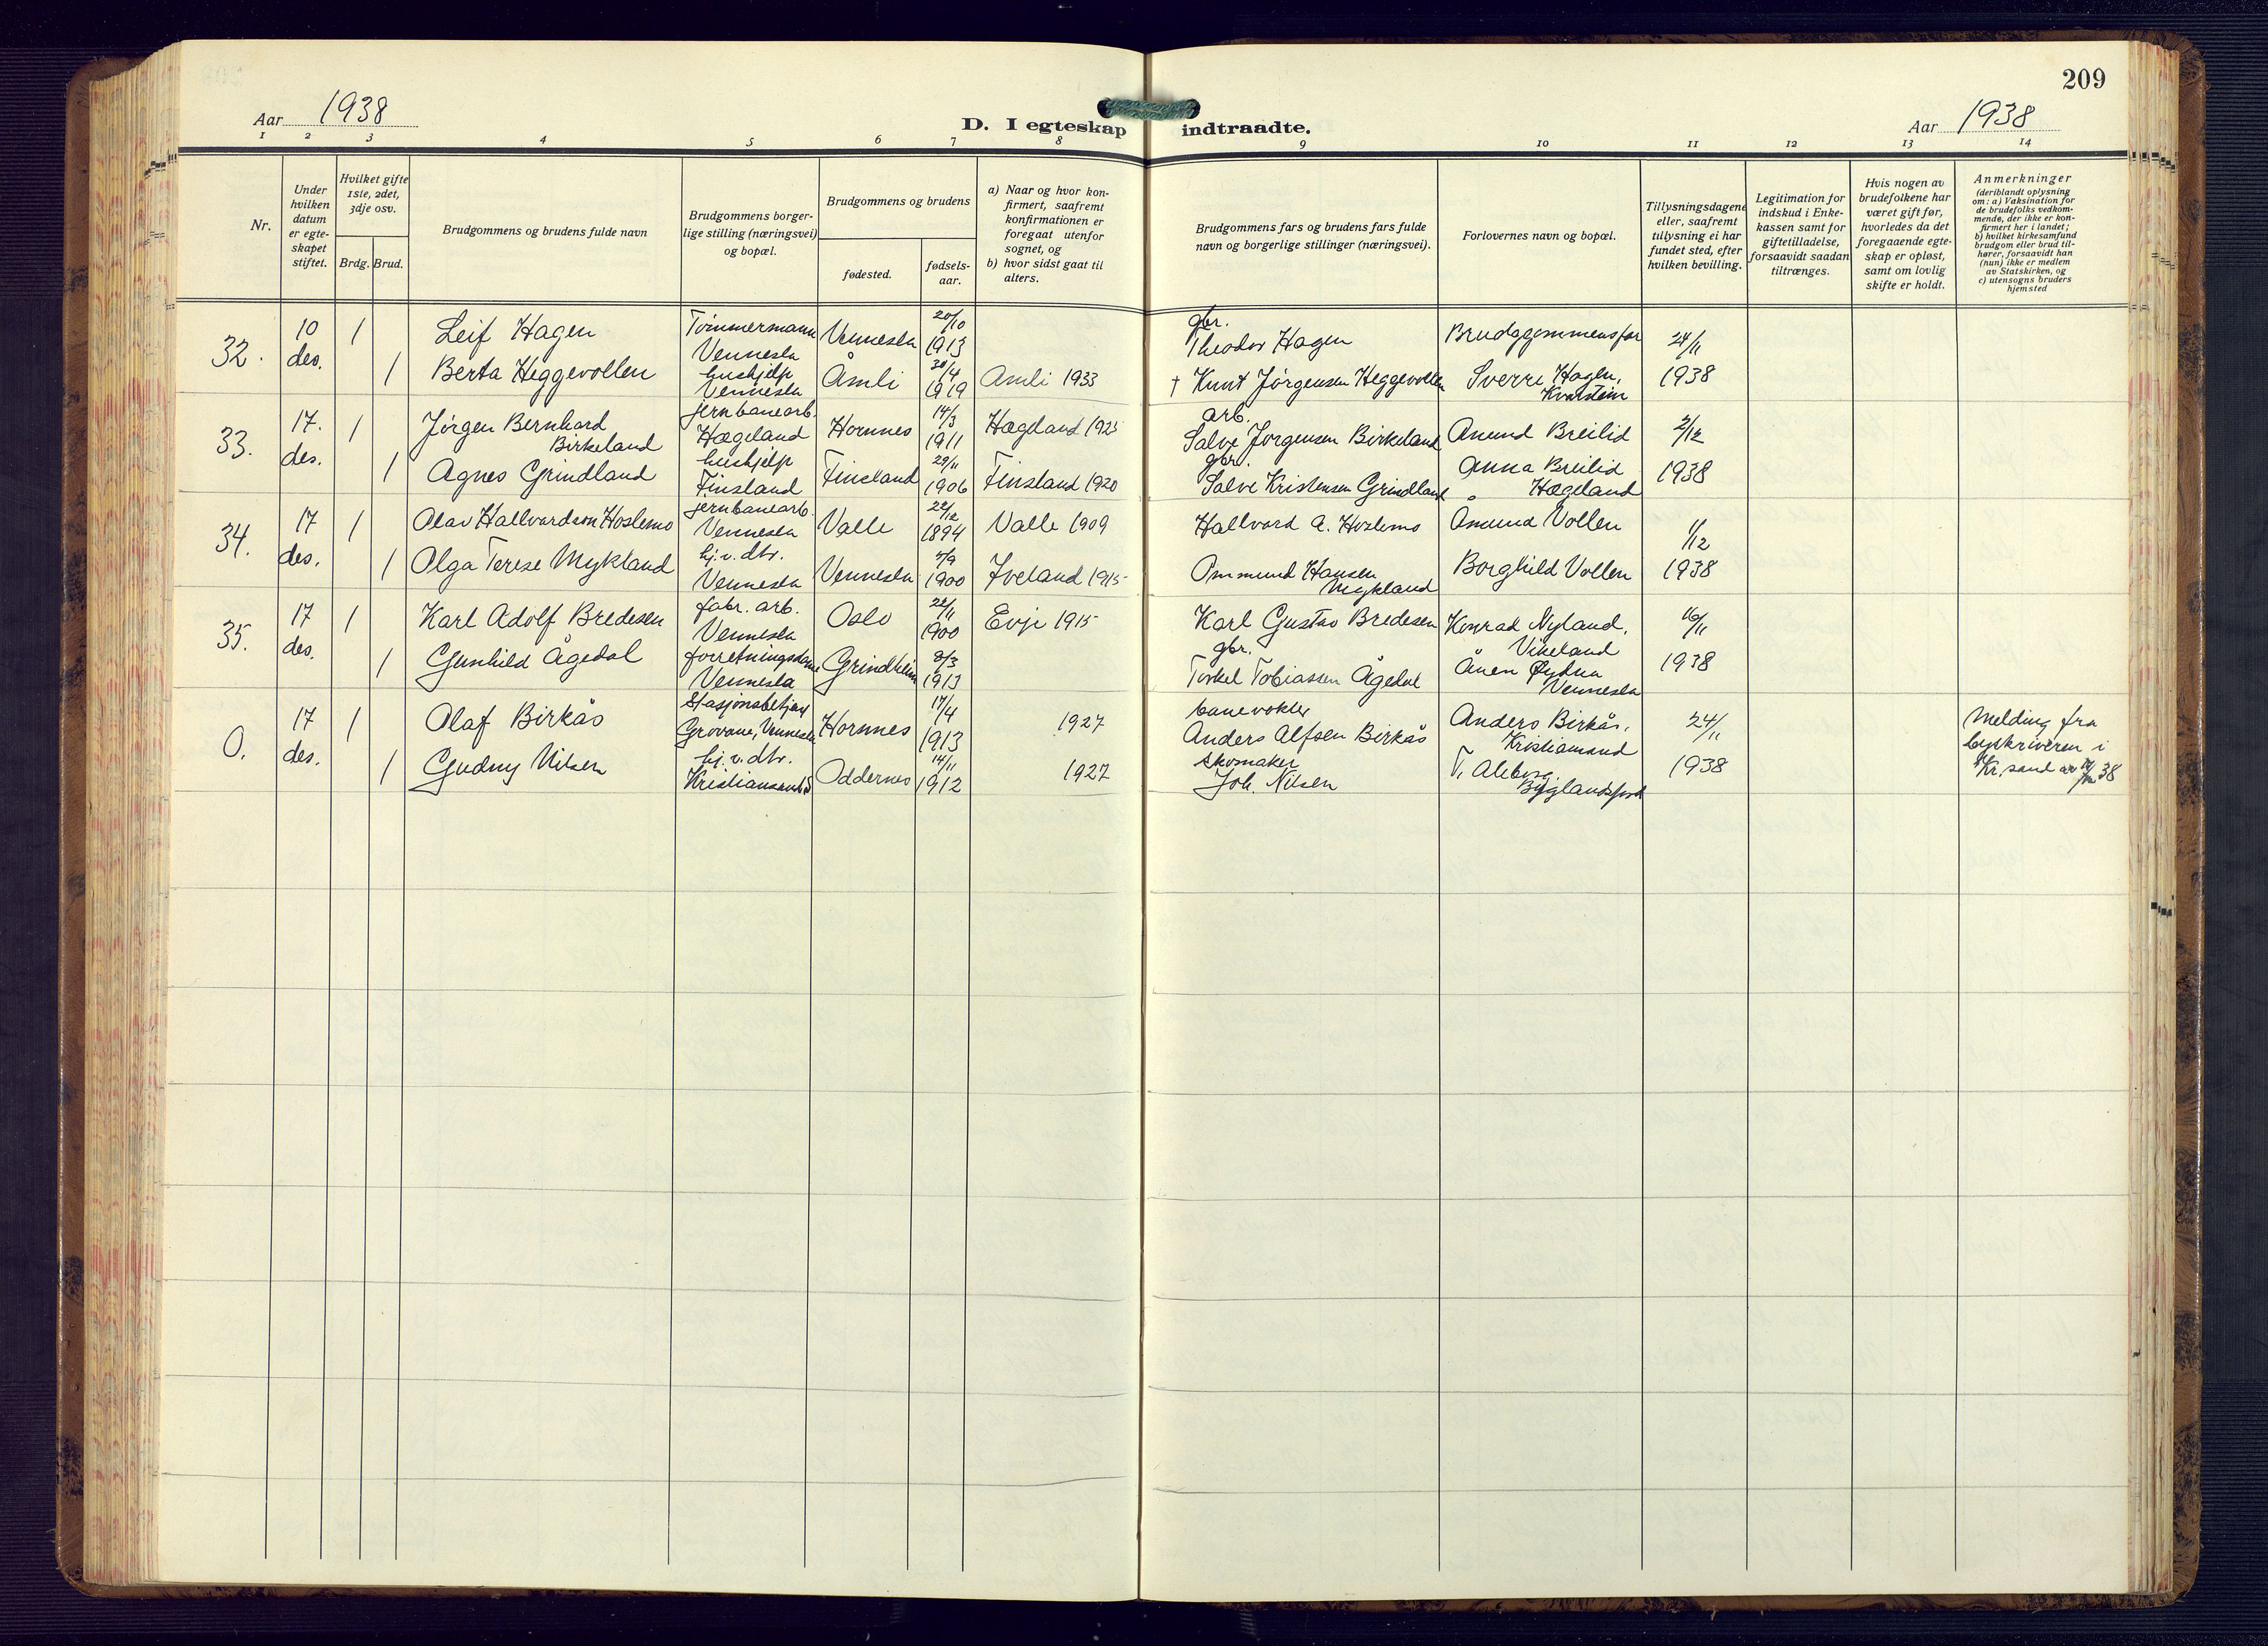 209
Aar 1938
D. I egteskap indtraadte.
Aar 1938
1 2 3 4 5 6 7 8 9 10 11 12 13 14
Nr.
Under hvilken datum er egte-skapet stiftet.
Hvilket gifte 1ste, 2det, 3dje osv.
Brdg. Brud.
Brudgommens og brudens fulde navn
Brudgommens borger-lige stilling (næringsvei) og bopæl.
Brudgommens og brudens
fødested.
fødsels-aar.
a) Naar og hvor kon-firmert, saafremt konfirmationen er foregaat utenfor sognet, og
b) hvor sidst gaat til alters.
Brudgommens fars og brudens fars fulde navn og borgerlige stillinger (næringsvei).
Forlovernes navn og bopæl.
Tillysningsdagene eller, saafremt tillysning ei har fundet sted, efter hvilken bevilling.
Legitimation for indskud i Enke-kassen samt for giftetilladelse, forsaavidt saadan tiltrænges.
Hvis nogen av brudefolkene har været gift før, hvorledes da det foregaaende egte-skap er opløst, samt om lovlig skifte er holdt.
Anmerkninger
(deriblandt oplysning om: a) Vaksination for de brudefolks vedkom-mende, der ikke er kon-firmert her i landet; b) hvilket kirkesamfund brudgom eller brud til-hører, forsaavidt han (hun) ikke er medlem av Statskirken, og c) utensogns bruders hjemsted
32. 10 des. 1 Leif Hagen Tømmermann Vennesla Vennesla 20/10 1913 gbr. Theodor Hagen Brudgommens far 24/11 1938
1 Berta Heggevollen hushjelp Vennesla Åmli 1919 Åmli 1933 † Knut Jørgensen Heggevollen Sverre Hagen, Kvarstein
33. 17. des. 1 Jørgen Bernhard Birkeland jernbanearb. Hægeland Hornnes 14/3 1911 Hægeland 1925 arb. Salve Jørgensen Birkeland Anund Breilid 2/12 1938
1 Agnes Grindland hushjelp Finsland Finsland 29/11 1906 Finsland 1920 gbr. Salve Kristensen Grindland Anna Breilid Hægeland
34. 17 des. 1 Olav Hallvardson Hoslemo jernbanearb. Vennesla Valle 22/12 1894 Valle 1909 Hallvard A. Hoslemo Amund Vollen 1/12 1938
1 Olga Terese Mykland hj.v. dtr. Vennesla Vennesla 1900 Iveland 1915 Ommund Hansen Mykland Borghild Vollen
35. 17 des. 1 Karl Adolf Bredesen fabr. arb. Vennesla Oslo 1900 Evje 1915 Karl Gustav Bredesen Konrad Nyland, Vikeland 16/11 1938
1 Gunhild Ågedal forretningsdame Vennesla Grindheim 8/3 1913 gbr. Torkel Tobiassen Ågedal Ånen Øydna Vennesla
0. 17 des. 1 Olaf Birkås Stasjonsbetjent Grovane, Vennesla Hornnes 17/4 1913 1927 banevokter Anders Alfsen Birkås Anders Birkås, Kristiansand 24/11 1938 Melding fra byskriveren i Kr.sand
1 Gudny Nilsen hj.v. dtr. Kristiansand S Oddernes 14/11 1912 1927 skomaker Joh. Nilsen Byglandsfjord